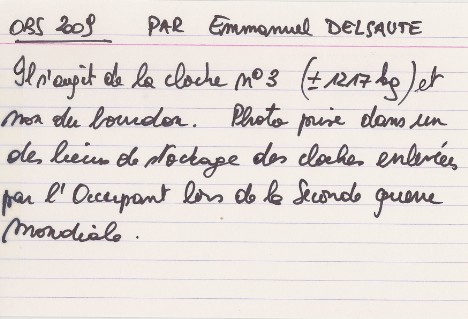 OBS 2009 PAR Emmanuel DELSAUTE
Il s'agit de la cloche n° 3 (± 1217 kg) et
non du bourdon. Photo prise dans un
des lieux de stockage des cloches enlevées
par l'Occupant lors de la Seconde guerre
Mondiale.